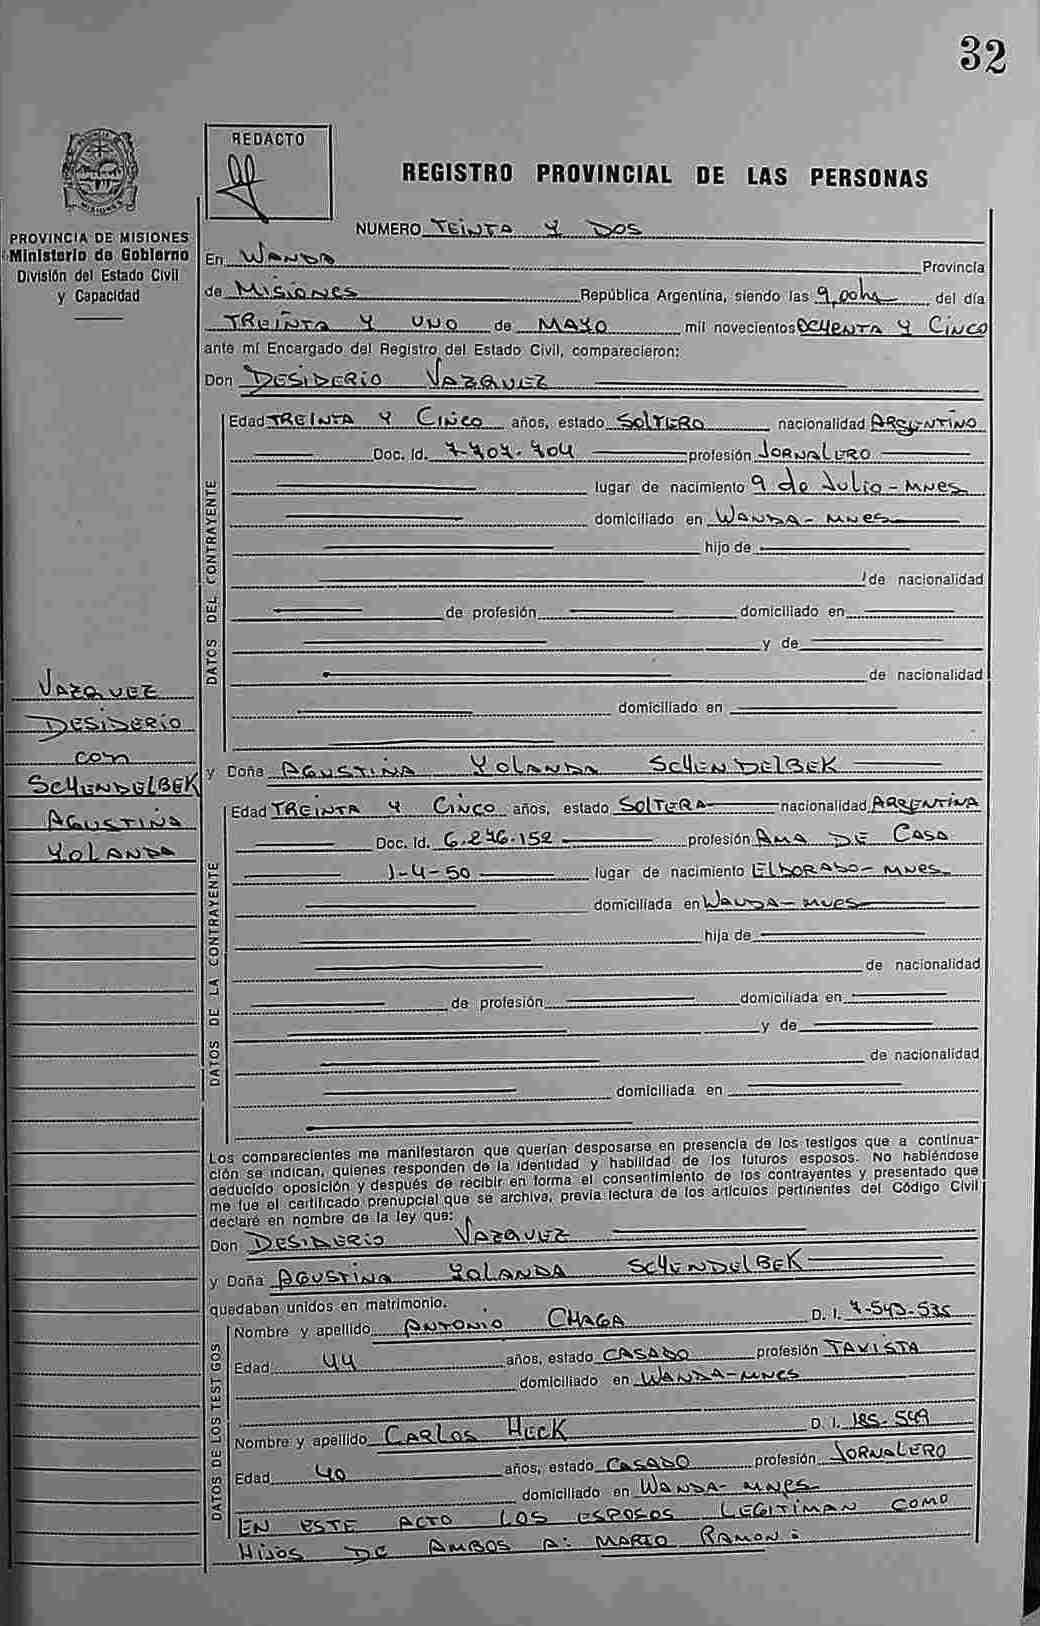 32
REDACTO
REGISTRO PROVINCIAL DE LAS PERSONAS
PROVINCIA DE MISIONES
Ministerio de Gobierno
División del Estado Civil
y Capacidad
NUMERO TEINTA Y DOS
En WANDA Provincia
de MISIONES República Argentina, siendo las 9,00hs del día
TREINTA Y UNO de MAYO mil novecientos OCHENTA Y CINCO
ante mí Encargado del Registro del Estado Civil, comparecieron:
Don DESIDERIO VAZQUEZ
DATOS DEL CONTRAYENTE
Edad TREINTA Y CINCO años, estado SOLTERO nacionalidad ARGENTINO
Doc. Id. 7.707.704 profesión JORNALERO
lugar de nacimiento 9 de Julio - MNES
domiciliado en WANDA - MNES
hijo de
de nacionalidad
de profesión domiciliado en
y de
de nacionalidad
domiciliado en
VAZQUEZ
DESIDERIO
con
SCHENDELBEK
AGUSTINA
YOLANDA
y Doña AGUSTINA YOLANDA SCHENDELBEK
DATOS DE LA CONTRAYENTE
Edad TREINTA Y CINCO años, estado SOLTERA nacionalidad ARGENTINA
Doc. Id. 6.276.152 profesión AMA DE CASA
1-4-50 lugar de nacimiento ELDORADO - MNES
domiciliada en WANDA - MNES
hija de
de nacionalidad
de profesión domiciliada en
y de
de nacionalidad
domiciliada en
Los comparecientes me manifestaron que querían desposarse en presencia de los testigos que a continua-
ción se indican, quienes responden de la identidad y habilidad de los futuros esposos. No habiéndose
deducido oposición y después de recibir en forma el consentimiento de los contrayentes y presentado que
me fue el certificado prenupcial que se archiva, previa lectura de los artículos pertinentes del Código Civil
declaré en nombre de la ley que:
Don DESIDERIO VAZQUEZ
y Doña AGUSTINA YOLANDA SCHENDELBEK
quedaban unidos en matrimonio.
DATOS DE LOS TESTIGOS
Nombre y apellido ANTONIO CHAGA D. I. 7-543-535
Edad 44 años, estado CASADO profesión TAXISTA
domiciliado en WANDA-MNES
Nombre y apellido CARLOS HECK D. I. 185.549
Edad 40 años, estado CASADO profesión JORNALERO
domiciliado en WANDA - MNES
EN ESTE ACTO LOS ESPOSOS LEGITIMAN COMO
HIJOS DE AMBOS A: MARIO RAMON: